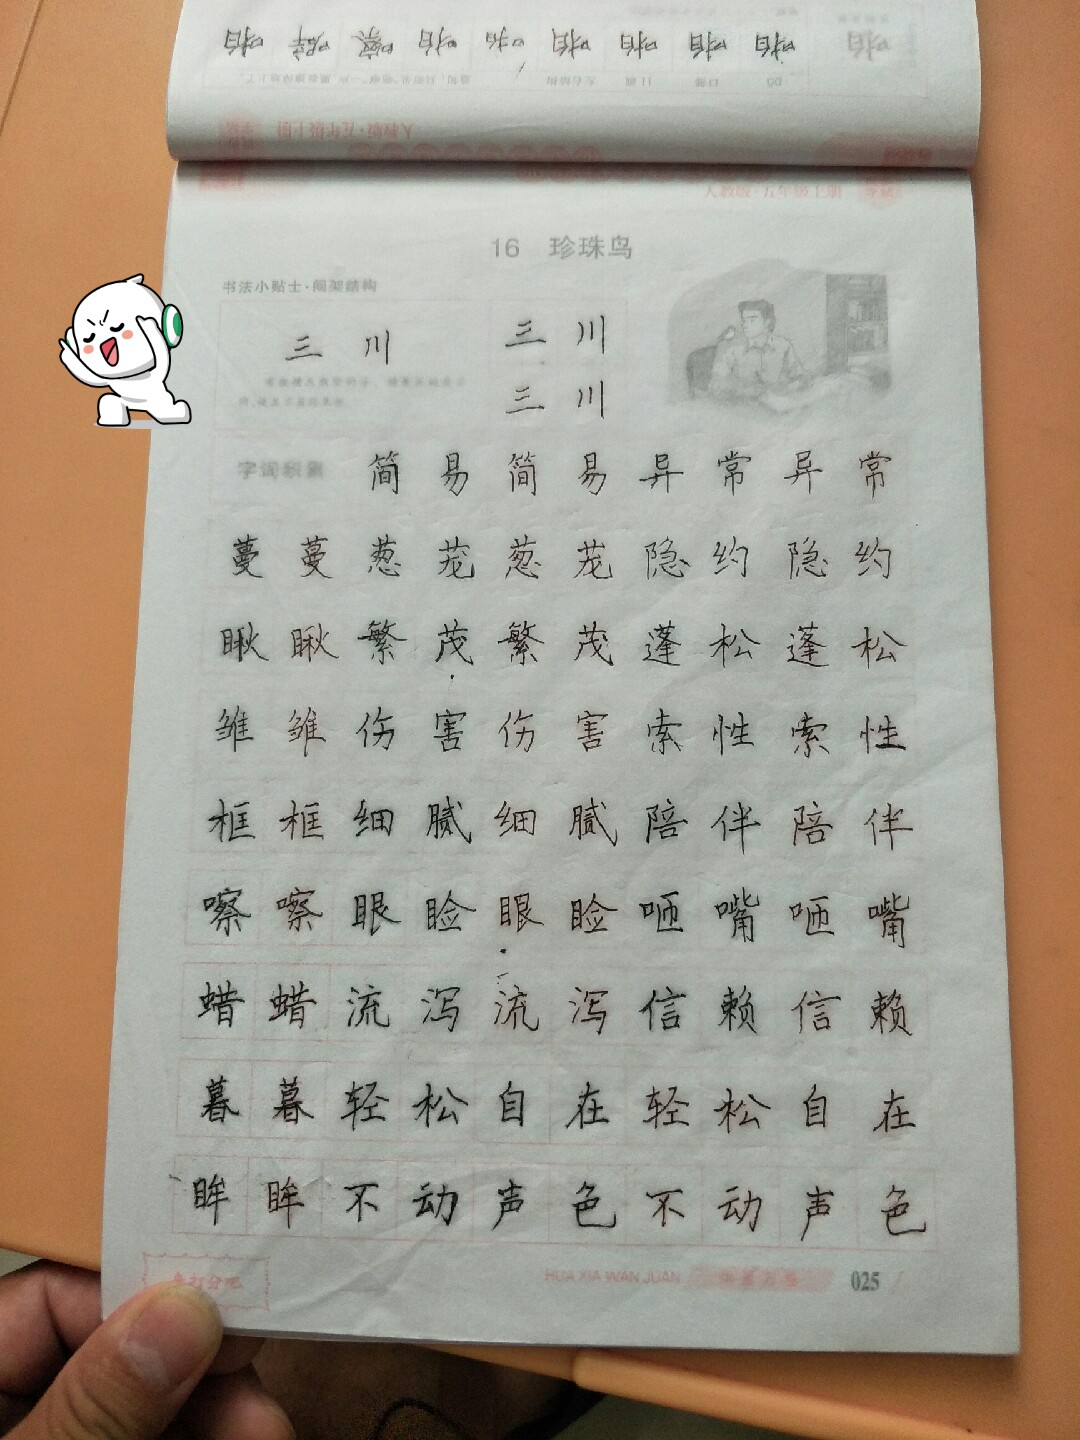 啪 噼 嚓 啪 啪 啪 啪 啪 啪 啪
口部 11画 左右结构
人教版·五年级上册
人教版·五年级上册
16 珍珠鸟
书法小贴士·间架结构
三 川 三 川
三 川
字词积累 简 易 简 易 异 常 异 常
蔓 蔓 葱 茏 葱 茏 隐 约 隐 约
瞅 瞅 繁 茂 繁 茂 蓬 松 蓬 松
雏 雏 伤 害 伤 害 索 性 索 性
框 框 细 腻 细 腻 陪 伴 陪 伴
嚓 嚓 眼 睑 眼 睑 咂 嘴 咂 嘴
蜡 蜡 流 泻 流 泻 信 赖 信 赖
暮 暮 轻 松 自 在 轻 松 自 在
眸 眸 不 动 声 色 不 动 声 色
打分吧 HUA XIA WAN JUAN 华夏万卷 025